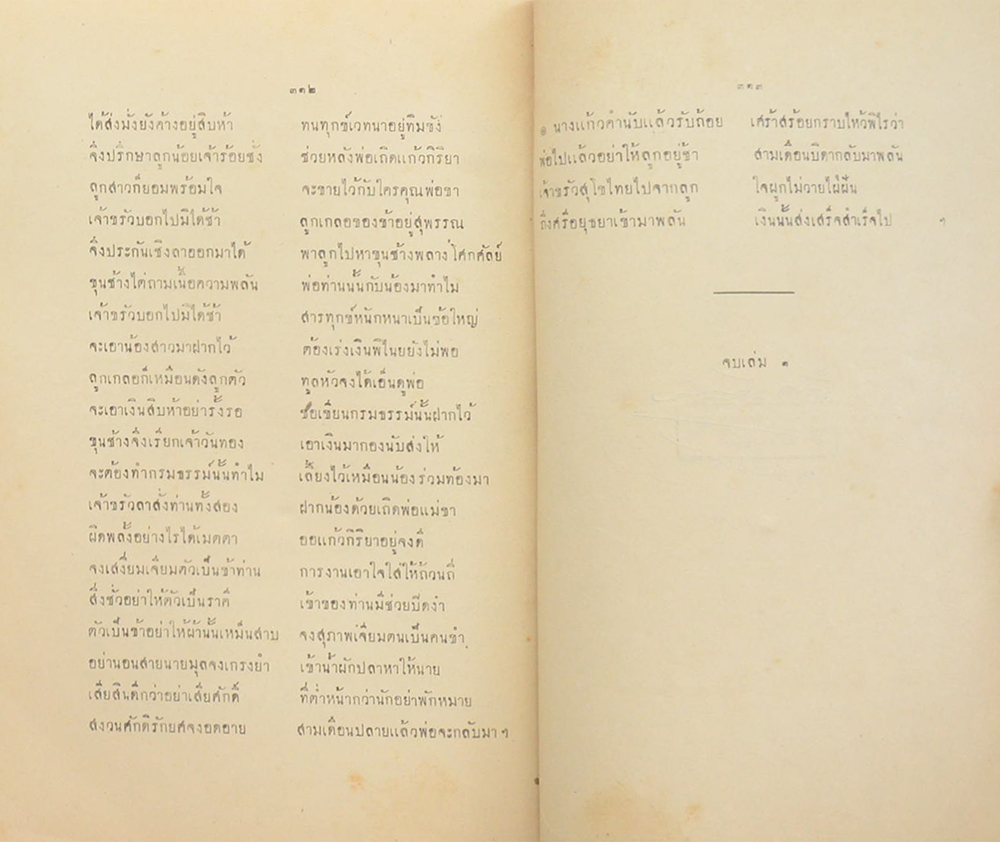 ๓๑๒
ได้ส่งมั่งยังค้างอยู่สิบห้า ทนทุกข์เวทนาอยู่ทิมขัง
จึ่งปรึกษาลูกน้อยเจ้าร้อยชั่ง ช่วยหลังพ่อเถิดแก้วกิริยา
ลูกสาวก็ยอมพร้อมใจ จะขายไว้กับใครคุณพ่อขา
เจ้าขรัวบอกไปมิได้ช้า ลูกเกลอของข้าอยู่สุพรรณ
จึ่งประกันเชิงลาออกมาได้ พาลูกไปหาขุนช้างพลางโศกศัลย์
ขุนช้างไต่ถามเนื้อความพลัน พ่อท่านนั้นกับน้องมาทำไม
เจ้าขรัวบอกไปมิได้ช้า สารทุกข์หนักหนาเป็นข้อใหญ่
จะเอาน้องสาวมาฝากไว้ ต้องเร่งเงินพิไนยยังไม่พอ
ลูกเกลอก็เหมือนดังลูกตัว ทูลหัวจงได้เอ็นดูพ่อ
จะเอาเงินสิบห้าอย่ารั้งรอ ช่อเขียนกรมธรรม์นั้นฝากไว้
ขุนช้างจึ่งเรียกเจ้าวันทอง เอาเงินมากองนับส่งให้
จะต้องทำกรมธรรม์นั้นทำไม เลี้ยงไว้เหมือนน้องร่วมท้องมา
เจ้าขรัวลาสั่งท่านทั้งสอง ฝากน้องด้วยเถิดพ่อแม่ขา
ผิดพลั้งอย่างไรได้เมตตา ออแก้วกิริยาอยู่จงดี
จงเสงี่ยมเจียมตัวเป็นข้าท่าน การงานเอาใจใส่ให้ถ้วนถี่
สิ่งชั่วอย่าให้ตัวเป็นราคี เข้าของท่านมีช่วยปิดงำ
ตัวเป็นข้าอย่าให้ผ้านั้นเหม็นสาบ จงสุภาพเจียมตนเป็นคนขำ
อย่านอนสายนายมุลจงเกรงยำ เข้าน้ำผักปลาหาให้นาย
เสียสินดีกว่าอย่าเสียศักดิ์ ที่ต่ำหน้ากว่านักอย่าพักหมาย
สงวนศักดิรักยศจงอดอาย สามเดือนปลายแล้วพ่อจะกลับมา ฯ
๓๑๓
๏ นางแก้วคำนับแล้วรับถ้อย เศร้าสร้อยกราบไหว้พิไรว่า
พ่อไปแล้วอย่าให้ลูกอยู่ช้า สามเดือนบิดากลับมาพลัน
เจ้าขรัวสุโขไทยไปจากลูก ใจผูกไม่วายใฝ่ฝัน
ถึงศรีอยุธยาเข้ามาพลัน เงินนั้นส่งเสร็จสำเร็จไป ฯ
จบเล่ม ๑